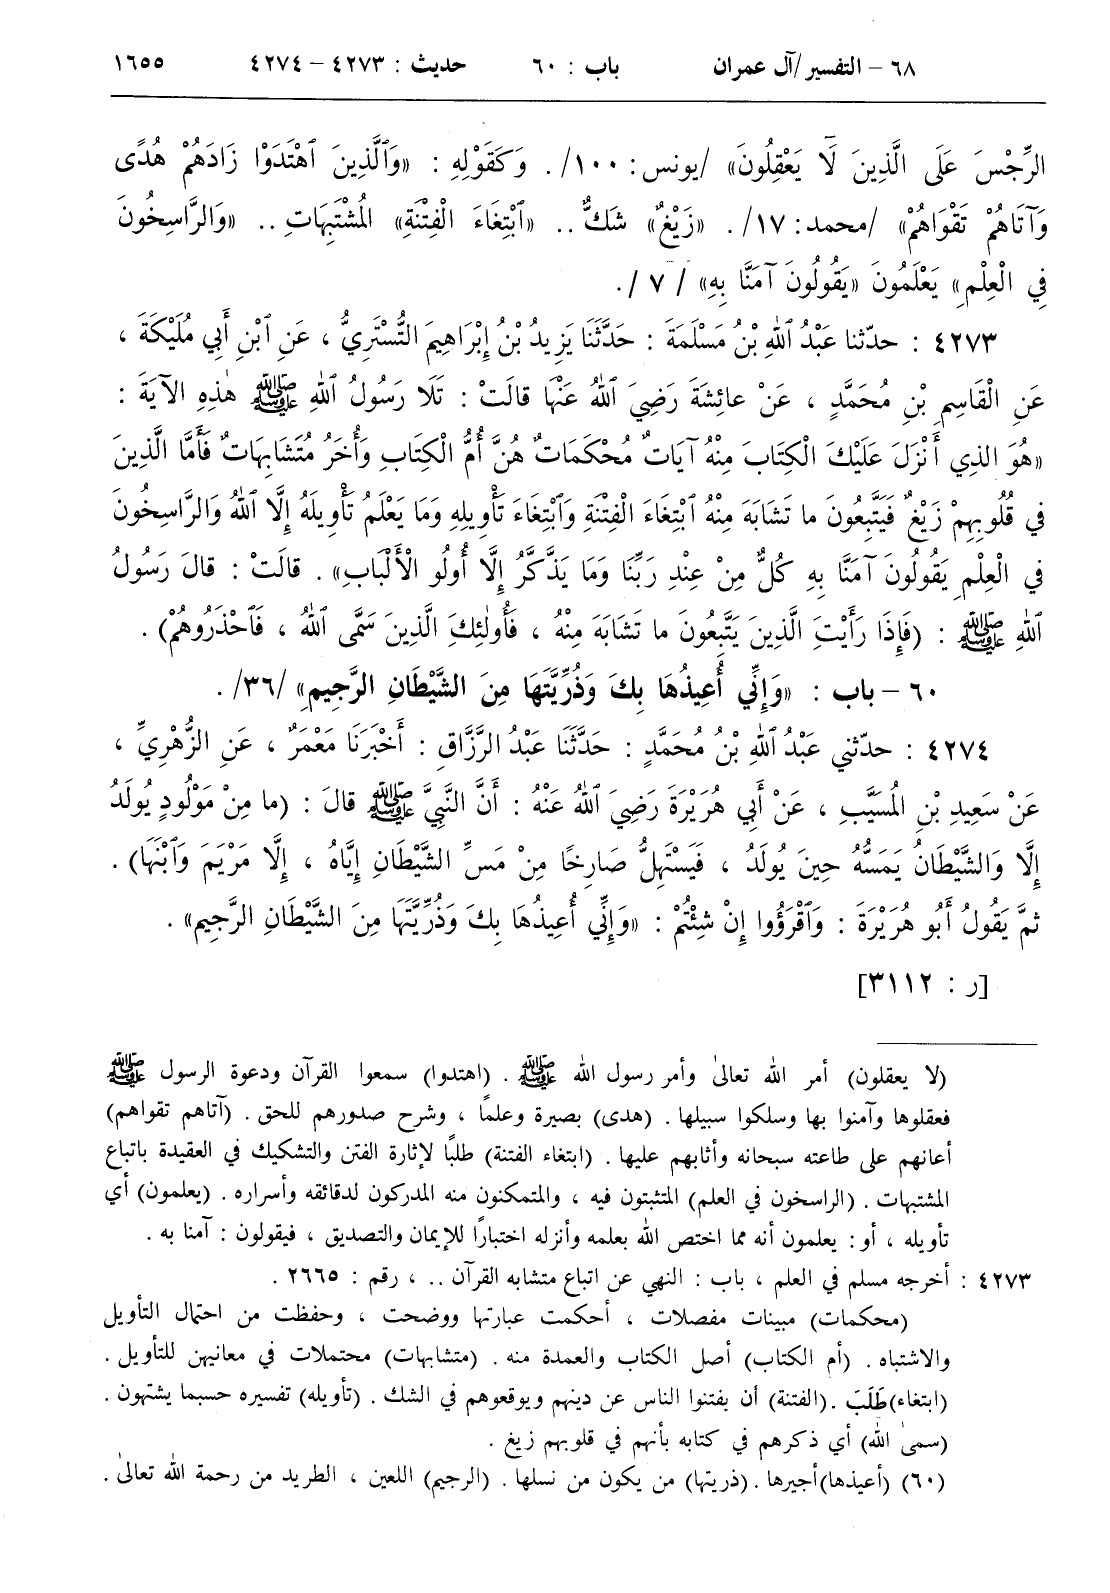 ٦٨ – التفسير/آل عمران باب : ٦٠ حديث : ٤٢٧٣ – ٤٢٧٤ ١٦٥٥
الرِّجْسَ عَلَى الَّذِينَ لَا يَعْقِلُونَ» /يونس: ١٠٠/. وَكَقَوْلِهِ : «وَٱلَّذِينَ ٱهْتَدَوْا زَادَهُمْ هُدًى
وَآتَاهُمْ تَقْوَاهُمْ» /محمد: ١٧/. «زَيْغٌ» شَكٌّ .. «ٱبْتِغَاءَ الْفِتْنَةِ» المُشْتَبِهَاتِ .. «وَالرَّاسِخُونَ
فِي الْعِلْمِ» يَعْلَمُونَ «يَقُولُونَ آمَنَّا بِهِ» / ٧ /.
٤٢٧٣ : حدّثنا عَبْدُ ٱللهِ بْنُ مَسْلَمَةَ : حَدَّثَنَا يَزِيدُ بْنُ إِبْرَاهِيمَ التُّسْتَرِيُّ ، عَنِ ٱبْنِ أَبِي مُلَيْكَةَ ،
عَنِ الْقَاسِمِ بْنِ مُحَمَّدٍ ، عَنْ عائِشَةَ رَضِيَ ٱللهُ عَنْهَا قالَتْ : تَلَا رَسُولُ ٱللهِ ﷺ هٰذِهِ الآيَةَ :
«هُوَ الذِي أَنْزَلَ عَلَيْكَ الْكِتَابَ مِنْهُ آيَاتٌ مُحْكَمَاتٌ هُنَّ أُمُّ الْكِتَابِ وَأُخَرُ مُتَشَابِهَاتٌ فَأَمَّا الَّذِينَ
في قُلُوبِهِمْ زَيْغٌ فَيَتَّبِعُونَ ما تَشَابَهَ مِنْهُ ٱبْتِغَاءَ الْفِتْنَةِ وَٱبْتِغَاءَ تَأْوِيلِهِ وَمَا يَعْلَمُ تَأْوِيلَهُ إِلَّا ٱللهُ وَالرَّاسِخُونَ
في الْعِلْمِ يَقُولُونَ آمَنَّا بِهِ كُلٌّ مِنْ عِنْدِ رَبِّنَا وَمَا يَذَّكَّرُ إِلَّا أُولُو الْأَلْبَابِ» . قالَتْ : قالَ رَسُولُ
ٱللهِ ﷺ : (فَإِذَا رَأَيْتَ الَّذِينَ يَتَّبِعُونَ ما تَشَابَهَ مِنْهُ ، فَأُولٰئِكَ الَّذِينَ سَمَّى ٱللهُ ، فَٱحْذَرُوهُمْ) .
٦٠ – باب : «وَإِنِّي أُعِيذُهَا بِكَ وَذُرِّيَّتَهَا مِنَ الشَّيْطَانِ الرَّجِيمِ» /٣٦/ .
٤٢٧٤ : حدّثني عَبْدُ ٱللهِ بْنُ مُحَمَّدٍ : حَدَّثَنَا عَبْدُ الرَّزَّاقِ : أَخْبَرَنَا مَعْمَرٌ ، عَنِ الزُّهْرِيِّ ،
عَنْ سَعِيدِ بْنِ المُسَيَّبِ ، عَنْ أَبِي هُرَيْرَةَ رَضِيَ ٱللهُ عَنْهُ : أَنَّ النَّبِيَّ ﷺ قالَ : (ما مِنْ مَوْلُودٍ يُولَدُ
إِلَّا وَالشَّيْطَانُ يَمَسُّهُ حِينَ يُولَدُ ، فَيَسْتَهِلُّ صَارِخًا مِنْ مَسِّ الشَّيْطَانِ إِيَّاهُ ، إِلَّا مَرْيَمَ وَٱبْنَهَا) .
ثمَّ يَقُولُ أَبُو هُرَيْرَةَ : وَٱقْرَؤُوا إِنْ شِئْتُمْ : «وَإِنِّي أُعِيذُهَا بِكَ وَذُرِّيَّتَهَا مِنَ الشَّيْطَانِ الرَّجِيمِ» .
[ر : ٣١١٢]
(لا يعقلون) أمر الله تعالىٰ وأمر رسول الله ﷺ . (اهتدوا) سمعوا القرآن ودعوة الرسول ﷺ
فعقلوها وآمنوا بها وسلكوا سبيلها . (هدى) بصيرة وعلمًا ، وشرح صدورهم للحق . (آتاهم تقواهم)
أعانهم على طاعته سبحانه وأثابهم عليها . (ابتغاء الفتنة) طلبًا لإثارة الفتن والتشكيك في العقيدة باتباع
المشتبهات . (الراسخون في العلم) المتثبتون فيه ، والمتمكنون منه المدركون لدقائقه وأسراره . (يعلمون) أي
تأويله ، أو: يعلمون أنه مما اختص الله بعلمه وأنزله اختبارًا للإيمان والتصديق ، فيقولون : آمنا به .
٤٢٧٣ : أخرجه مسلم في العلم ، باب : النهي عن اتباع متشابه القرآن .. ، رقم : ٢٦٦٥ .
(محكمات) مبينات مفصلات ، أحكمت عبارتها ووضحت ، وحفظت من احتمال التأويل
والاشتباه . (أم الكتاب) أصل الكتاب والعمدة منه . (متشابهات) محتملات في معانيهن للتأويل .
(ابتغاء)طَلَبَ .(الفتنة) أن يفتنوا الناس عن دينهم ويوقعوهم في الشك . (تأويله) تفسيره حسبما يشتهون .
(سمىٰ الله) أي ذكرهم في كتابه بأنهم في قلوبهم زيغ .
(٦٠) (أعيذها)أجيرها .(ذريتها) من يكون من نسلها . (الرجيم) اللعين ، الطريد من رحمة الله تعالىٰ .